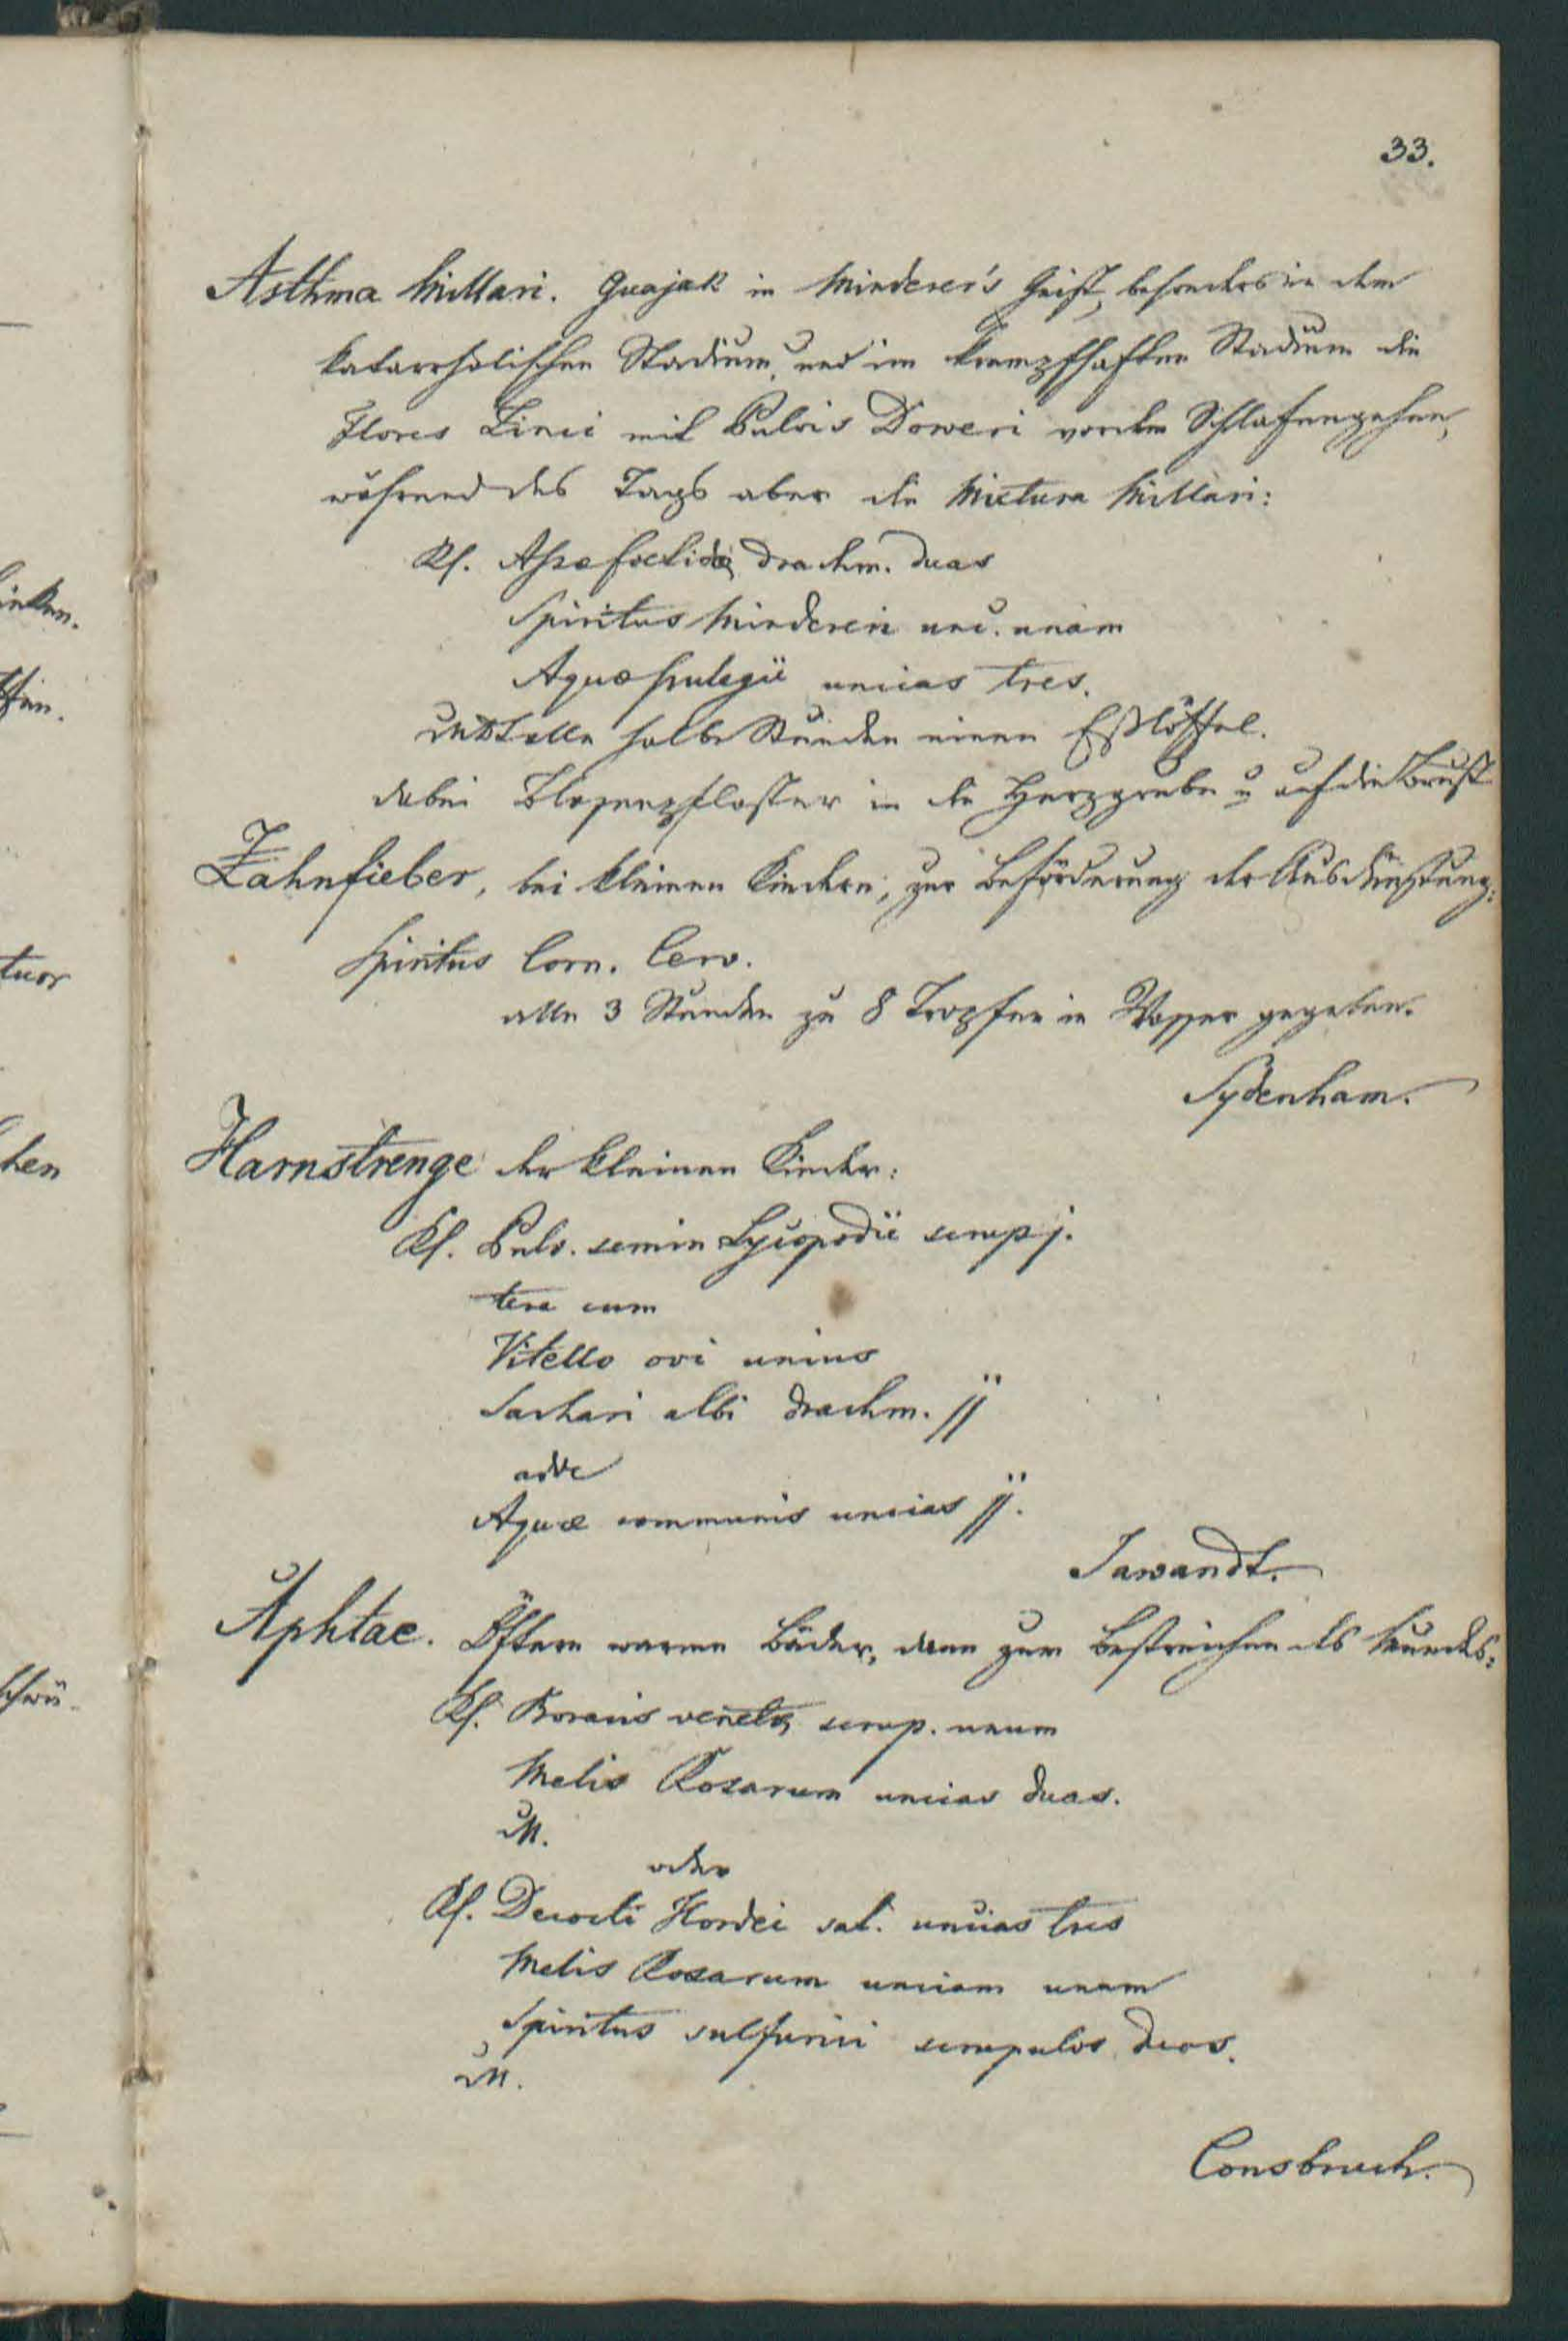 33.
Asthma Millari. Guajak in Minderer's Geist, besonders in dem
katarrhalischen Stadium, und im krampfhaften Stadium die
Flores Zinci mit Pulvis Doweri vor dem Schlafengehen,
während des Tags aber die Mixtura Millari:
Rf. Assae foetidae drachm. duas
Spiritus Mindereri unc. unam
Aquae pulegii uncias tres.
alle halbe Stunden einen Eßlöffel.
dabei Blasenpflaster in die Herzgrube u auf die Brust
Zahnfieber, bei kleinen Kindern, zur Beförderung der Ausdünstung:
Spiritus Corn. Cerv.
alle 3 Stunden zu 8 Tropfen in Wasser gegeben.
Sydenham.
Harnstrenge der kleinen Kinder:
Rf. Pulv. semin Lycopodii scrup j.
tere cum
Vitello ovi unius
Sachari albi drachm. jj
adde
Aquae communis uncias jj.
Jawandt.
Aphtae. Öftere warme Bäder, dann zum Bestreichen des Mundes:
Rf. Boracis venetae scrup. unum
Melis Rosarum uncias duas.
M.
oder
Rf. Decocti Hordei sat. uncias tres
Melis Rosarum unciam unam
Spiritus sulfurici scrupulos duos.
M.
Consbruch.
tuor